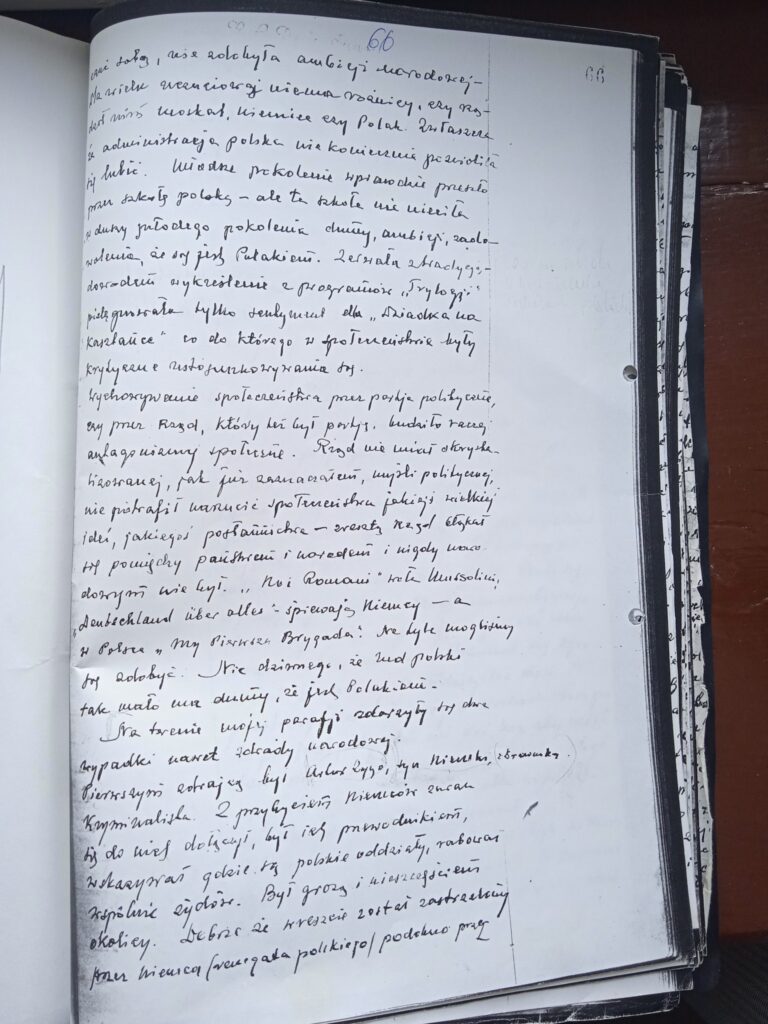 66
66
sobą, nie zdobyła ambicji narodowej –
dla wielu niema różnicy, czy
moskal, niemiec czy Polak. Zwłaszcza
że administracja polska niekoniecznie pozwoliła
się lubić. Młodsze pokolenie wprawdzie przeszło
przez szkołę polską – ale ta szkoła nie wnieciła
w duszy młodego pokolenia dumy, ambicji, zado-
wolenia, że się jest Polakiem. Zerwała z tradycją –
dowodem wykreślenie z programów „Trylogji”
pielęgnowała tylko sentyment dla „Dziadka na
Kasztance” co do którego w społeczeństwie były
krytyczne ustosunkowywania się.
Wychowywanie społeczeństwa przez partje polityczne,
czy przez Rząd, który też był partją, budziło raczej
antagonizmy społeczne. Rząd nie miał skrysta-
lizowanej, jak już zaznaczałem, myśli politycznej,
nie potrafił narzucić społeczeństwu jakiejś wielkiej
idei, jakiegoś posłannictwa – zresztą rząd błąkał
się pomiędzy państwem i narodem i nigdy naro-
dowym nie był. „Noi Romani” woła Mussolini,
„Deutschland über alles” – śpiewają Niemcy — a
w Polsce „My Pierwsza Brygada”. Na tyle mogliśmy
się zdobyć. Nic dziwnego, że lud polski
tak mało ma dumy, że jest Polakiem.
Na terenie mojej parafji zdarzyły się dwa
wypadki nawet zdrady narodowej.
Pierwszym zdrajcą był Artur Zygo, syn Niemki,
Kryminalista. Z przybyciem Niemców zaraz
się do nich dołączył, był ich przewodnikiem,
wskazywał gdzie są polskie oddziały, rabował
wspólnie żydów. Był grozą i nieszczęściem
okolicy. Dobrze że wreszcie został zastrzelony
przez niemca /renegata polskiego/ podobno przez